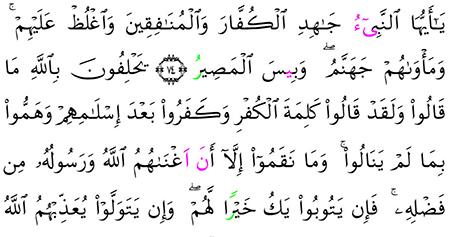 يَـٰٓأَيُّهَا اَ۬لنَّبِىٓءُ جَـٰهِدِ اِ۬لْكُفَّارَ وَالْمُنَـٰفِقِينَ وَاغْلُظْ عَلَيْهِمْ ۚ
وَمَأْوَىٰهُمْ جَهَنَّمُ ۖ وَبِيسَ اَ۬لْمَصِيرُ ۝٧٤ يَحْلِفُونَ بِاللَّهِ مَا
قَالُوا۟ وَلَقَدْ قَالُوا۟ كَلِمَةَ اَ۬لْكُفْرِ وَكَفَرُوا۟ بَعْدَ إِسْلَـٰمِهِمْ وَهَمُّوا۟
بِمَا لَمْ يَنَالُوا۟ ۚ وَمَا نَقَمُوٓا۟ إِلَّآ أَنَ اَغْنَىٰهُمُ اُ۬للَّهُ وَرَسُولُهُۥ مِن
فَضْلِهِۦ ۚ فَإِن يَتُوبُوا۟ يَكُ خَيْرًا لَّهُمْ ۖ وَإِن يَتَوَلَّوْا۟ يُعَذِّبْهُمُ اُ۬للَّهُ